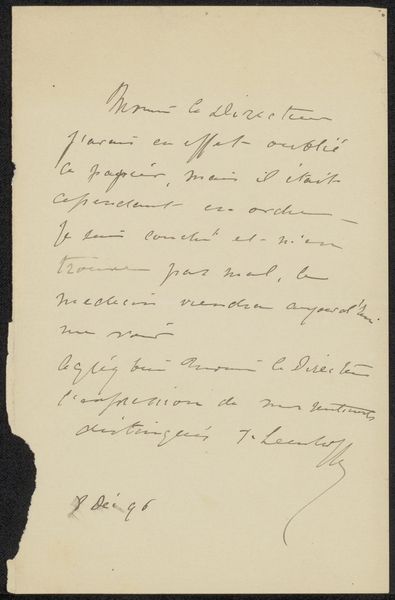 Monsieur le Directeur
j'avais en effet oublié
le papier, mais il était
cependant en ordre _
Je suis couché et n'en
trouve pas mal, le
medecin viendra aujourd'hui
me voir
Monsieur le Directeur
l'expression de mes sentiments
distingués J. Leenhoff
8 Déc 96